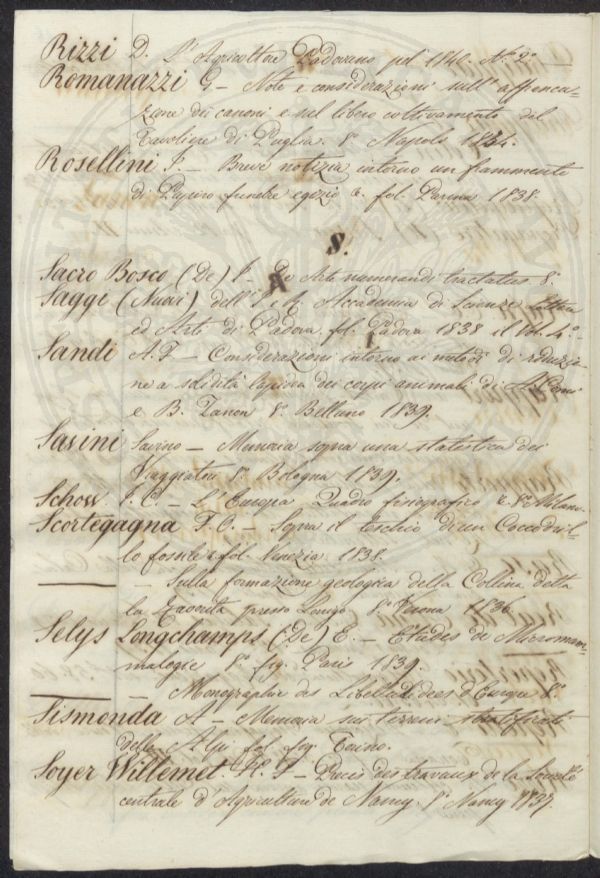 Rizzi D. L'Agricoltore Padovano pel 1840. N.° 2.°
Romanazzi G. – Note e considerazioni sull' affranca-
zione dei canoni e sul libero coltivamento del
Tavoliere di Puglia. 8.° Napoli 1834.
Rosellini I. – Breve notizia intorno un frammento
di Papiro funebre egizio &. fol. Parma 1838.
S.
Sacro Bosco (De) J. – De Arte numerandi tractatus 8.°
Sagge (Nuovi) dell' I. e R. Accademia di Scienze Lettere
ed Arti di Padova. fol. Padova 1838 il Vol. 4.°
Sandi A. F. – Considerazioni intorno ai metodi di riduzio-
ne a solidità lapidea dei corpi animali di
e B. Zanon 8.° Belluno 1839.
Savini Savino – Memoria sopra una statistica dei
Viaggiatori 8.° Bologna 1839.
Schow J. C. – L'Europa Quadro fisiografico & 8.° Milano
Scortegagna F. O. – Sopra il Teschio di un Coccodril-
lo fossile & fol. Venezia 1838.
— – Sulla formazione geologica della Collina detta
la Favorita presso Lonigo. 8.° Verona 1836
Selys Longchamps (De) E. – Etudes de Micromam-
malogie 8.° fig. Paris 1839.
— – Monographie des Libellulidées d'Europe 8.°
Sismonda A – Memoria sui terreni stratificati
delle Alpi fol. fig. Torino.
Soyer Willemet H. F – Precis des travaux de la Société
centrale d'Agriculture de Nancy. 8.° Nancy 1837.